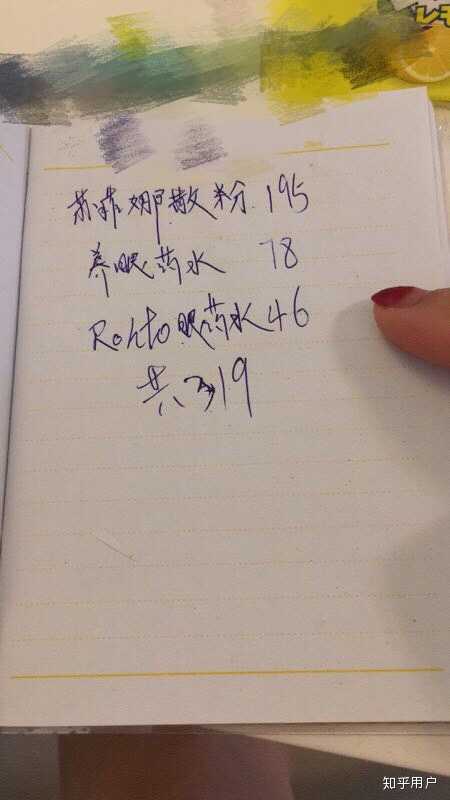 レモ
苏菲娜散粉 195
养眼药水 78
Rohto眼药水 46
共 319
知乎用户